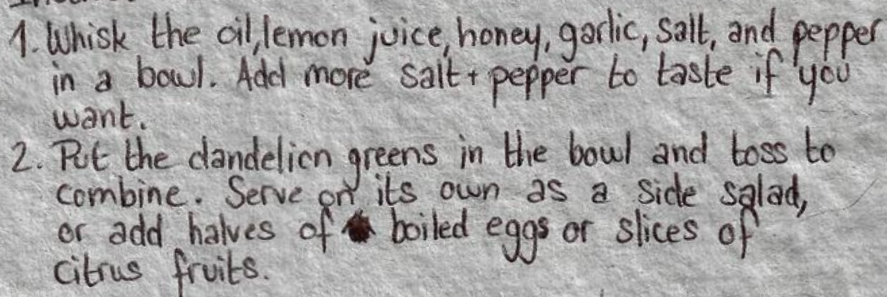 1. Whisk the oil, lemon juice, honey, garlic, salt, and pepper
in a bowl. Add more salt + pepper to taste if you
want.
2. Put the dandelion greens in the bowl and toss to
combine. Serve on its own as a side salad,
or add halves of boiled eggs or slices of
citrus fruits.